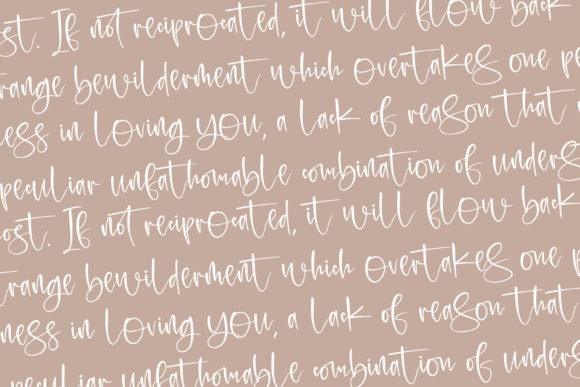 ost. If not reciprocated, it will flow back
trange bewilderment which overtakes one pe
ness in loving you, a lack of reason that
peculiar unfathomable combination of unders
ost. If not reciprocated, it will flow back
trange bewilderment which overtakes one p
ness in loving you, a lack of reason that
peculiar unfathomable combination of unders